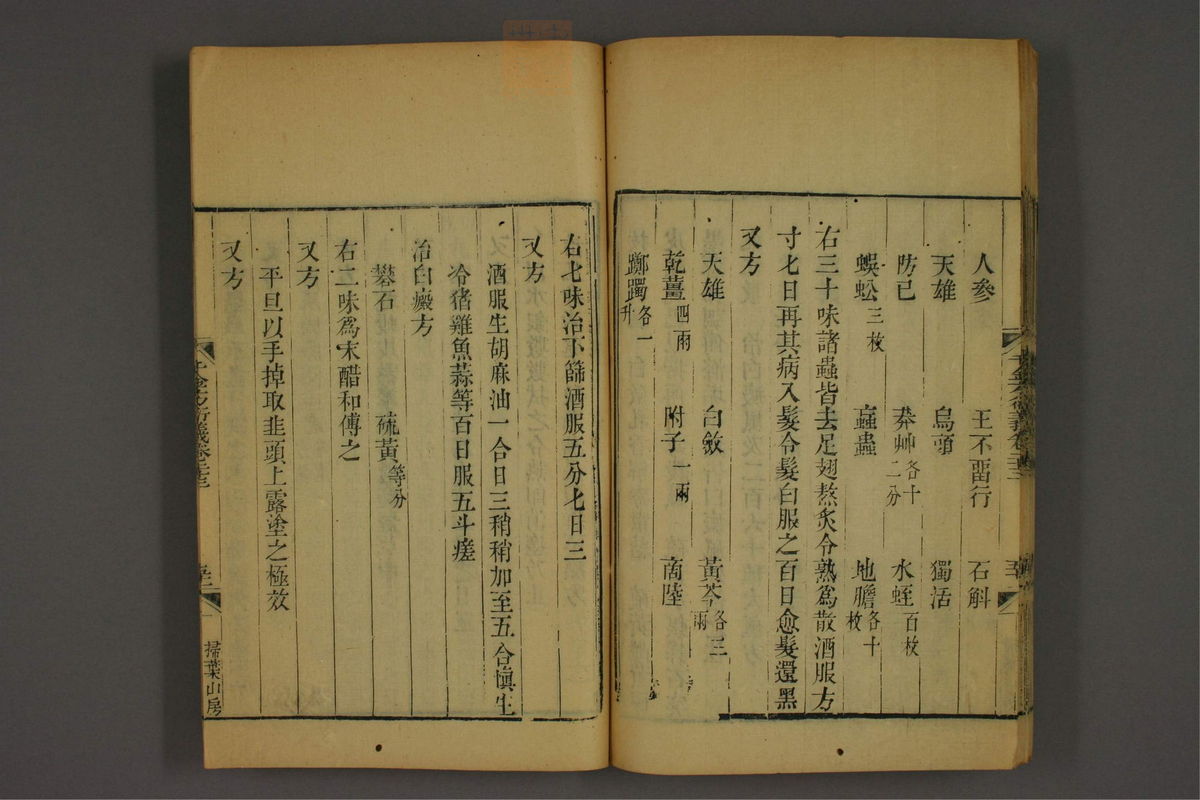 人參 王不畱行 石斛
天雄 烏頭 獨活
防己 莽艸各十二分 水蛭百枚
蜈蚣三枚 䗪蟲 地膽各十枚
右三十味諸蟲皆去足翅熬炙令熟爲散酒服方
寸七日再其病入髮令髮白服之百日愈髮還黑
又方
天雄 白斂 黃芩各三兩
乾薑四兩 附子一兩 商陸
躑躅各一升
右七味治下篩酒服五分七日三
又方
酒服生胡麻油一合日三稍稍加至五合愼生
冷猪雞魚蒜等百日服五斗瘥
治白癜方
礬石 硫黃等分
右二味爲末醋和傅之
又方
平旦以手掉取韭頭上露塗之極效
又方
千金方衍義卷
掃葉山房